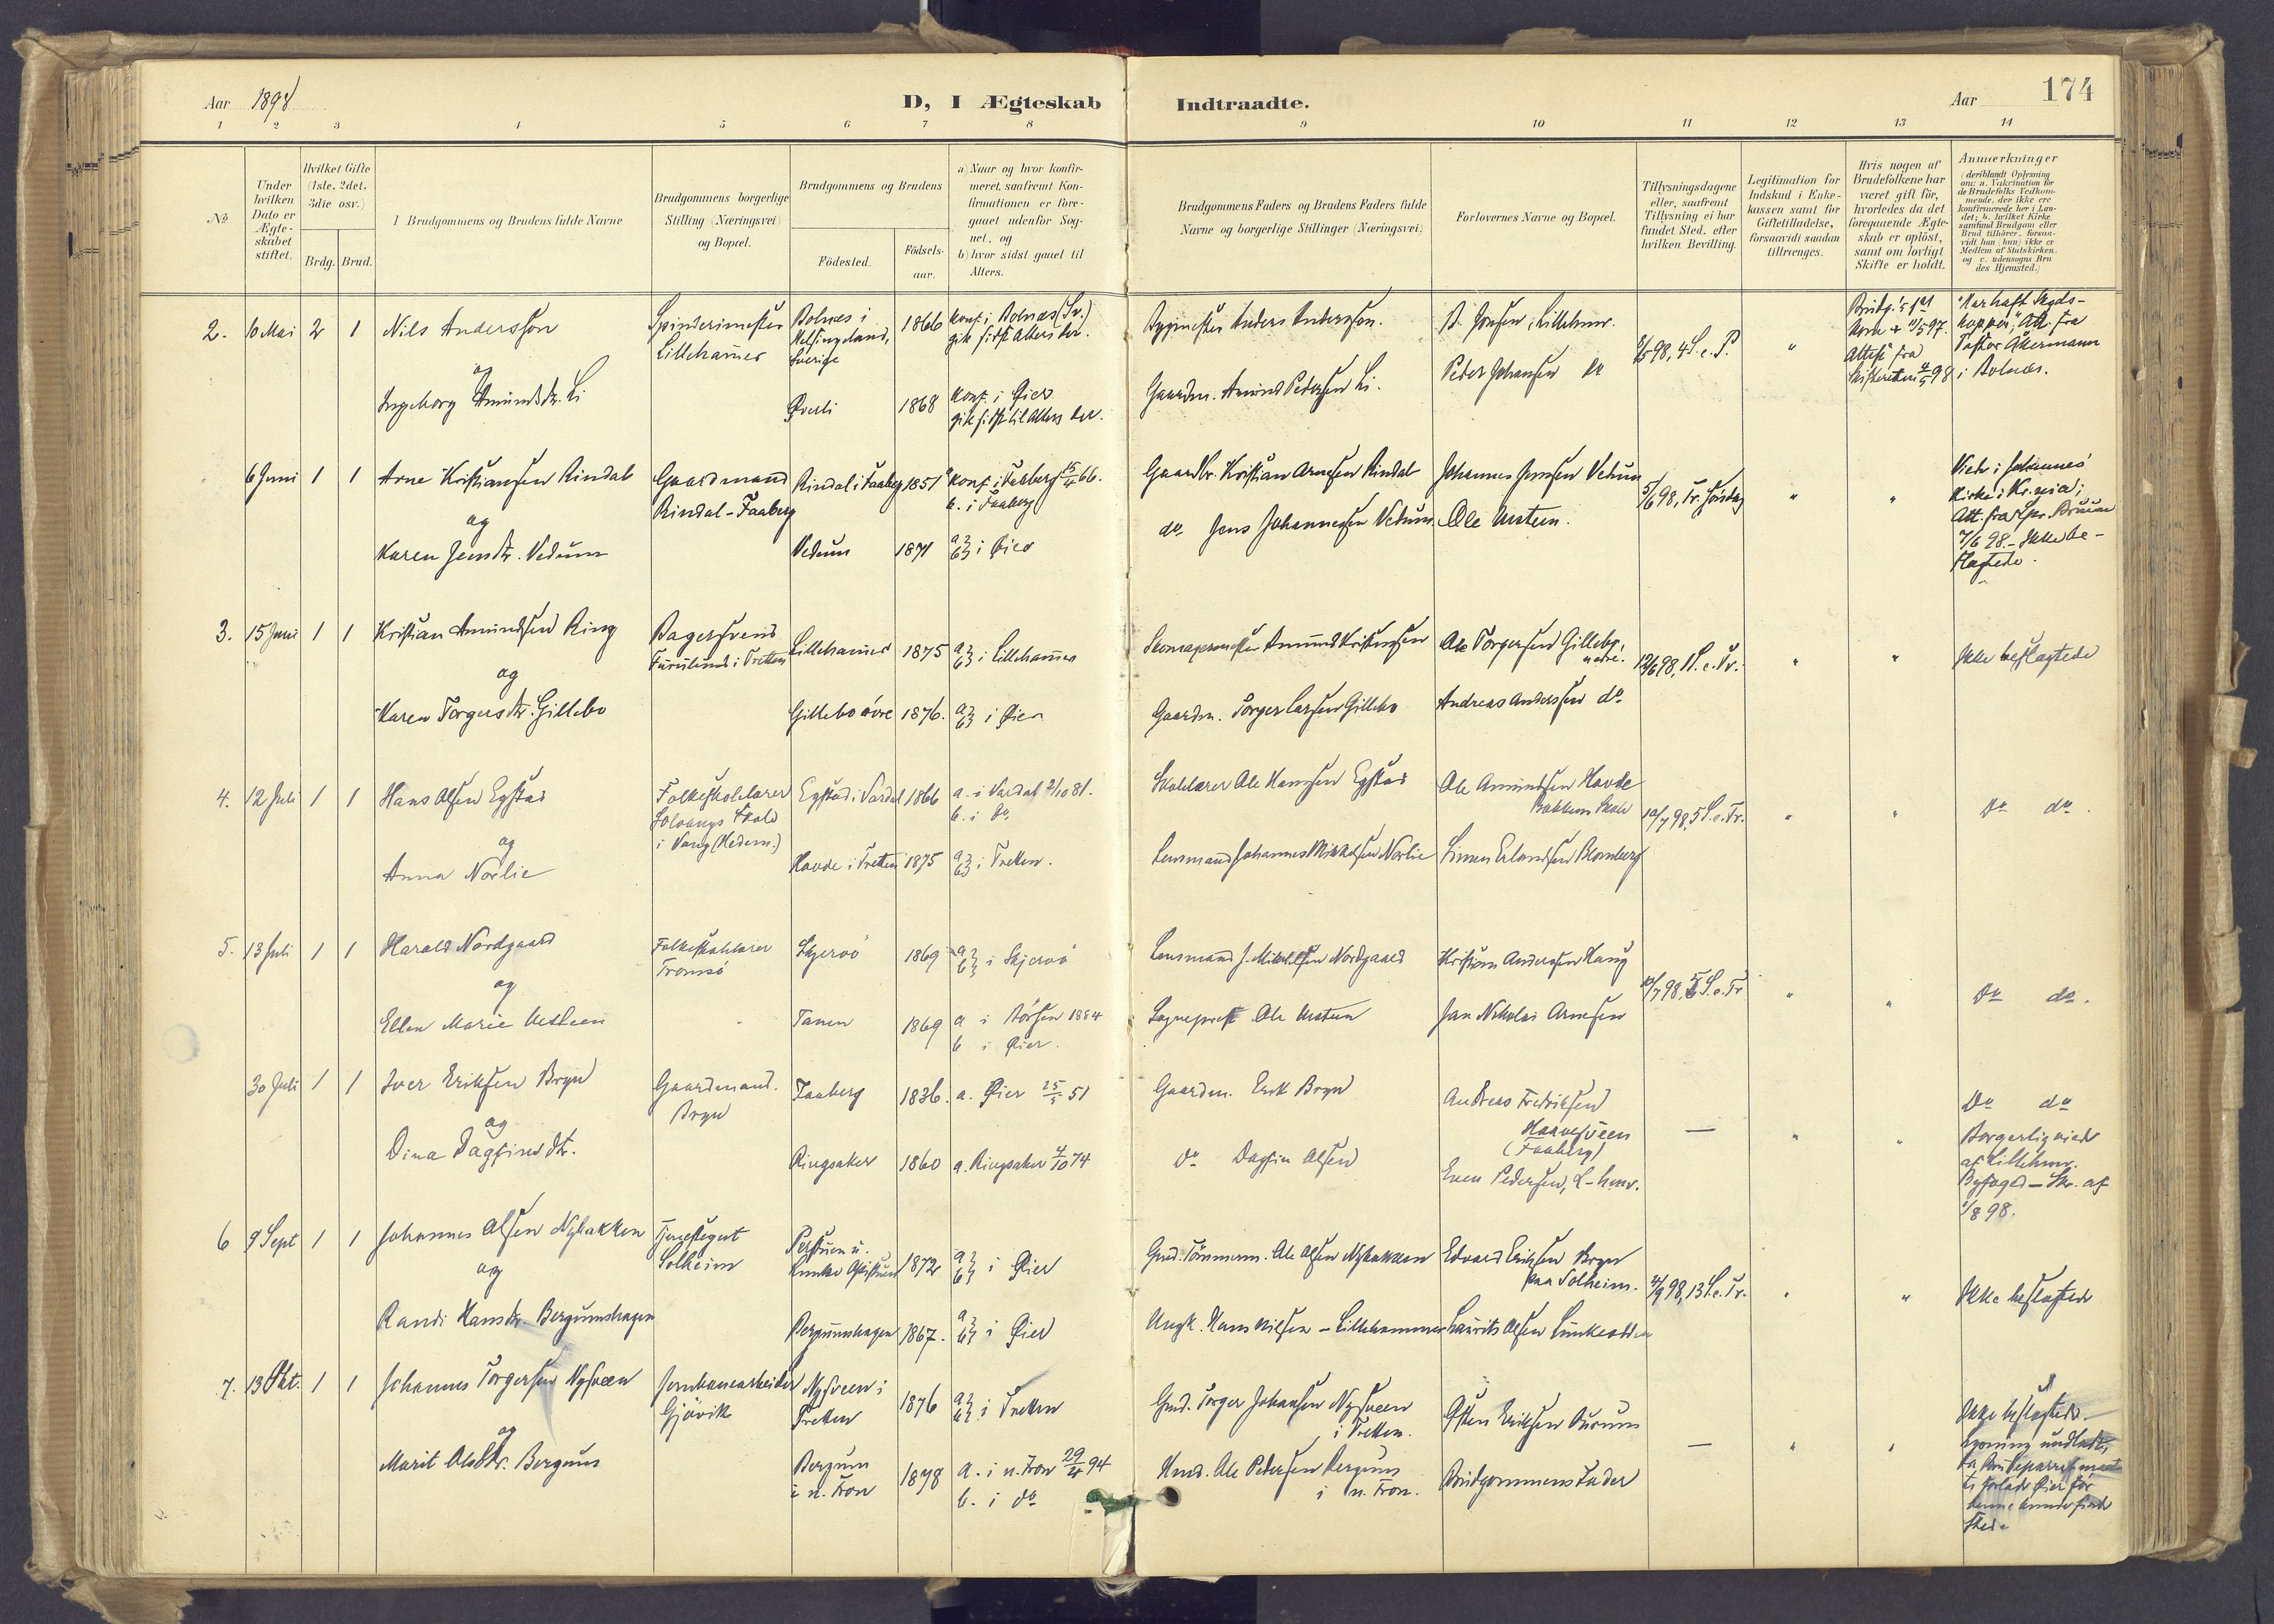 Aar 1898
D, I Ægteskab Indtraadte.
Aar
174
1 2 3 4 5 6 7 8 9 10 11 12 13 14
№
Under hvilken Dato er Ægteskabet stiftet.
Hvilket Gifte (1ste, 2det, 3die osv.)
Brdg. Brud.
I Brudgommens og Brudens fulde Navne
Brudgommens borgerlige Stilling (Næringsvei) og Bopæl.
Brudgommens og Brudens
Födested. Födselsaar.
a) Naar og hvor konfirmeret, saafremt Konfirmationen er foregaaet udenfor Sognet, og
b) hvor sidst gaaet til Alters.
Brudgommens Faders og Brudens Faders fulde Navne og borgerlige Stillinger (Næringsvei)
Forlovernes Navne og Bopæl.
Tillysningsdagene eller, saafremt Tillysning ei har fundet Sted, efter hvilken Bevilling.
Legitimation for Indskud i Enkekassen samt for Giftetilladelse, forsaavidt saadan tiltrænges.
Hvis nogen af Brudefolkene har været gift før, hvorledes da det foregaaende Ægteskab er oplöst, samt om lovligt Skifte er holdt.
Anmærkninger (deriblandt Oplysning om: a. Vakcination for de Brudefolks Vedkommende, der ikke ere konfirmerede her i Landet; b. hvilket Kirkesamfund Brudgom eller Brud tilhörer, forsaavidt han (hun) ikke er Medlem af Statskirken, og c. udensogns Brudes Hjemsted.)
2. 10 Mai 2 1 Nils Andersson
Spinderimester Lillehamer
Bolnæs i Helsingeland, Sverige
1866
konf. i Bolnæs (Sv.) gik sidst Alters her.
Bygmester Anders Andersson.
B. Jonsen, Lillehmr.
8/5 98, 4 S. e. P.
"
Brudg.'s 1ste Kone + 11/5 97. Attest fra Skifteretten 4/5 98
"har haft Skydskopper", Att. fra Pastor Åkermann i Bolnæs.
og
Ingeborg Amundsdtr. Li
Överli
1868
konf. i Öier gik sidst til Alters her.
Gaardm. Amund Pedersen Li.
Peder Johansen do
6 Juni 1 1 Arne Kristiansen Rindal
Gaardmand Rindal-Faaberg
Rindal i Faaberg 1851
a konf. i Faaberg 15/4 66.
b. i Faaberg
Gaardbr. Kristian Arnesen Rindal
Johannes Jensen Vedum
5/6 98, Tr. Söndag
" "
Viede i Johannes Kirke i Kr.ania; Att. fra Spr. Bruun 7/6 98. - Ikke beslægtede.
og
Karen Jensdtr. Vedum
Vedum 1871 a b } i Öier
do Jens Johannesen Vedum
Ole Utsteen.
3. 15 Juni 1 1 Kristian Amundsen Ring
Bagersvend Furulund i Tretten
Lillehamer 1875 a b } i Lillehamer
Skomagermester Amund Kristiansen
Ole Torgersen Gillebo, nedre.
12/6 98, 1 S. e. Tr.
" "
Ikke beslægtede
og
Karen Torgersdtr. Gillebo
Gillebo övre 1876. a b } i Öier
Gaardm. Torger Larsen Gillebo
Andreas Anderssen do
4. 12 Juli 1 1 Hans Olsen Egstad
Folkeskolelærer Solvangs Skole i Vang (Hedem.)
Egstad i Vardal 1866
a. i Vardal 2/10 81.
b. i do
Skolelærer Ole Hanssen Egstad
Ole Amundsen Hovde Bakkens Skole
10/7 98, 5 S. e. Tr.
" "
Do do.
og
Anna Norlie
Hovde i Tretten 1875 a b } i Tretten.
Lensmand Johannes Mikkelsen Norlie
Simen Erlandsen Blomberg
5. 13 Juli 1 1 Harald Nordgaard
Folkeskolelærer Tromsö
Skjervö 1869 a b } i Skjervö
Lensmand J. Mikkelsen Nordgaard
Kristian Andersen Haug
10/7 98, 5 S. e. Tr
" "
Do do.
og
Ellen Marie Utsteen
Tanen 1869
a i Börsen 1884
b i Öier.
Sogneprest Ole Utsteen
Jan Nikolai Arnesen
30 Juli 1 1 Iver Eriksen Bryn
Gaardmand. Bryn
Faaberg 1836. a. Öier 25/5 51
Gaardm. Erik Bryn
Andreas Fredriksen Haavesveen (Faaberg)
— " "
Do do
Borgerlig viede af Lillehmr. Byfoged - Skr. af 1/8 98.
og
Dina Dagfinsdtr.
Ringsaker 1860 a. Ringsaker 4/10 74
do Dagfin Olsen
Even Pedersen, L-hmr.
6 9 Sept 1 1 Johannes Olsen Nybakken
Tjenestegut Solheim
1872 a b } i Öier
Gmd. Tömmerm. Ole Olsen Nybakken
Edvard Eriksen Bryn paa Solheim.
4/9 98, 13 S. e. Tr.
" "
Ikke beslægtede
og
Randi Hansdtr. Bergumshagen
Bergumshagen 1867. a b } i Öier
Ungk. Hans Nilsen - Lillehammer
Laurits Olsen
7. 13 Okt. 1 1 Johannes Torgersen Nysveen
Jernbanearbeider Gjövik
Nysveen i Tretten 1876 a b } i Tretten
Gmd. Torger Johansen Nysveen i Tretten.
Östen Eriksen
— " "
Ikke beslægtede.
Lysning undladt, da Brudeparret maatte forlade Öier för denne kunde finde Sted.
og
Marit Olsdtr. Bergum
Bergum i n. Fron 1878
a. i n. Fron 29/4 94
b. i do
Hmd. Ole Pedersen Bergum i n. Fron.
Brudgommens Fader